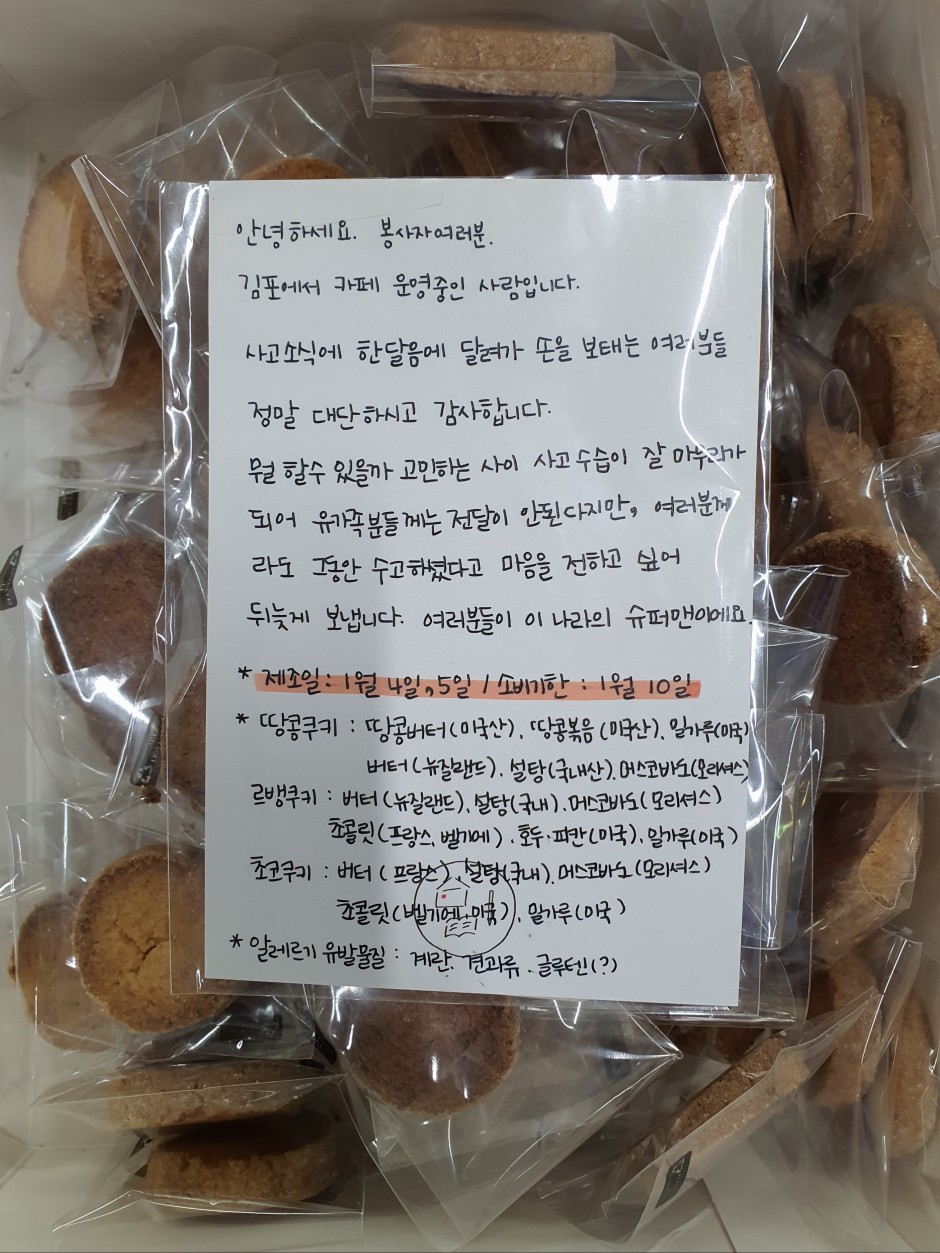 안녕하세요. 봉사자여러분.
김포에서 카페 운영중인 사람입니다.
사고소식에 한달음에 달려가 손을 보태는 여러분들
정말 대단하시고 감사합니다.
뭐 할수 있을까 고민하는 사이 사고수습이 잘 마무리가
되어 유가족분들께는 전달이 안된다지만, 여러분께
라도 그동안 수고하셨다고 마음을 전하고 싶어
뒤늦게 보냅니다. 여러분들이 이 나라의 슈퍼맨이에요.
* 제조일: 1월 4일, 5일 / 소비기한 : 1월 10일
* 땅콩쿠키 : 땅콩버터(미국산), 땅콩볶음(미국산), 밀가루(미국)
버터(뉴질랜드), 설탕(국내산), 머스코바도(모리셔스)
르뱅쿠키 : 버터(뉴질랜드), 설탕(국내), 머스코바도(모리셔스)
초콜릿(프랑스, 벨기에), 호두·피칸(미국), 밀가루(미국)
초코쿠키 : 버터(프랑스), 설탕(국내), 머스코바도(모리셔스)
초콜릿(벨기에, 미국), 밀가루(미국)
* 알레르기 유발물질 : 계란, 견과류, 글루텐(?)